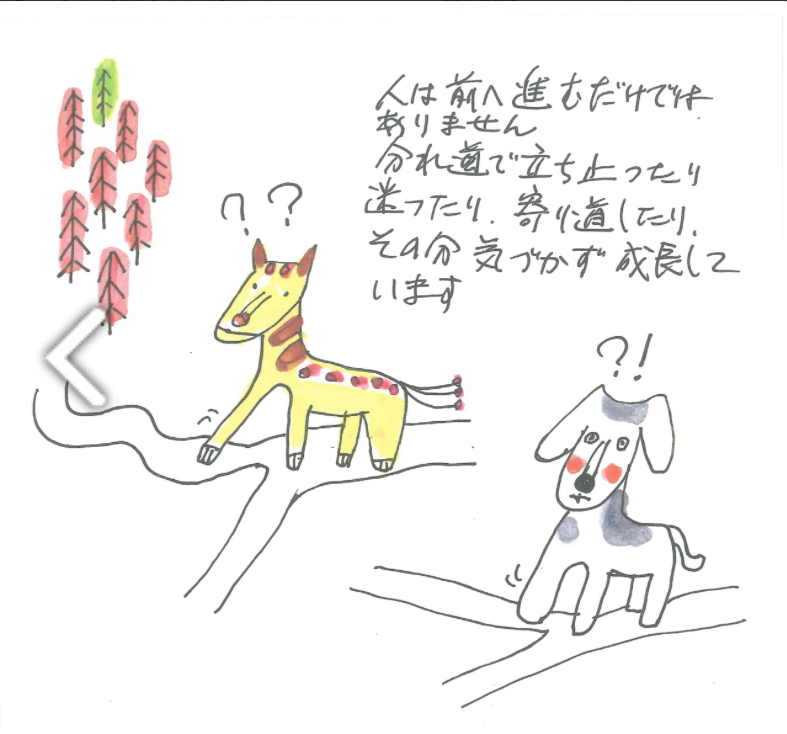 人は前へ進むだけでは
ありません
分れ道で立ち止ったり
迷ったり、寄り道したり、
その分気づかず成長して
います
??
?!